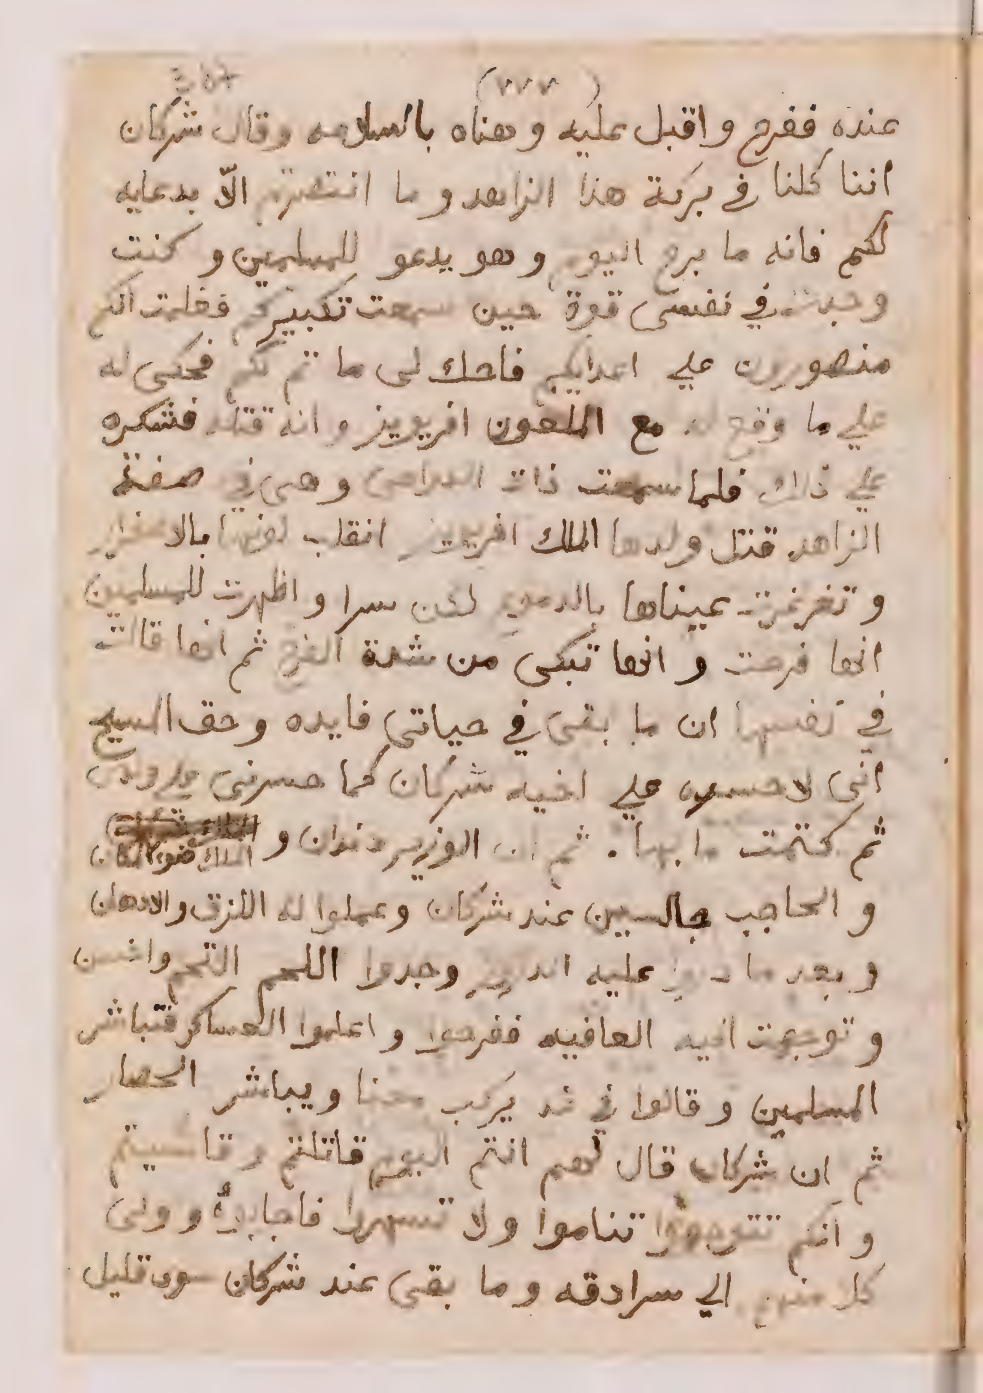 (٧٧٧)
عنده ففرح واقبل عليه وهناه بالسلامه وقال شركان
اننا كلنا في بركة هذا الزاهد وما انتصرتم الّا بدعايه
لكم فانه ما برح اليوم وهو يدعو للمسلمين وكنت
وجدت في نفسى قوة حين سمعت تكبيركم فعلمت انكم
منصورون علي اعدايكم فاحك لى ما تم لكم فحكى له
علي ما وقع له مع الملعون افريويز وانه قتله فشكره
علي ذلك فلما سمعت ذات الدواهى وهى في صفة
الزاهد قتل ولدها الملك افريويز انقلب لونها بالاصفرار
وتغرغرت عيناها بالدموع لكن سرا واظهرت للمسلمين
انها فرحت وانها تبكى من شدة الفرح ثم انها قالت
في نفسها ان ما بقى في حياتي فايده وحق المسيح
انى لاحسره علي اخيه شركان كما حسرنى علي ولدى
ثم كتمت ما بها . ثم ان الوزير دندان و الملك ضو المكان
والحاجب جالسين عند شركان وعملوا له اللزق والادهان
وبعد ما عليه وجدوا اللحم التحم
وتوجهت اليه العافيه ففرحوا واعلموا العساكر فتباشر
المسلمين وقالوا في غد يركب معنا ويباشر الحصار
ثم ان شركان قال لهم انتم اليوم قاتلتم وقاسيتم
وانكم تتوجهوا تناموا ولا تسهروا فاجابوه وولى
كل منهم الي سرادقه وما بقى عند شركان سوى قليل